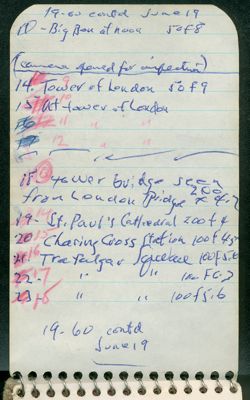 19-60 contd June 19
10 - Big Ben at noon 50f8
(camera opened for inspection)
14. Tower of London 50f9
15. At tower of London
16 " "
12 " "
18 Tower bridge seen
from London Bridge 200
19 14 St. Paul's Cathedral 200f4
20 15 Charing Cross Station 100f4.5
21 16 Trafalgar Square 100f5.6
22 17 " " 100f6.3
23 18 " " 100f5.6
19-60 contd
June 19